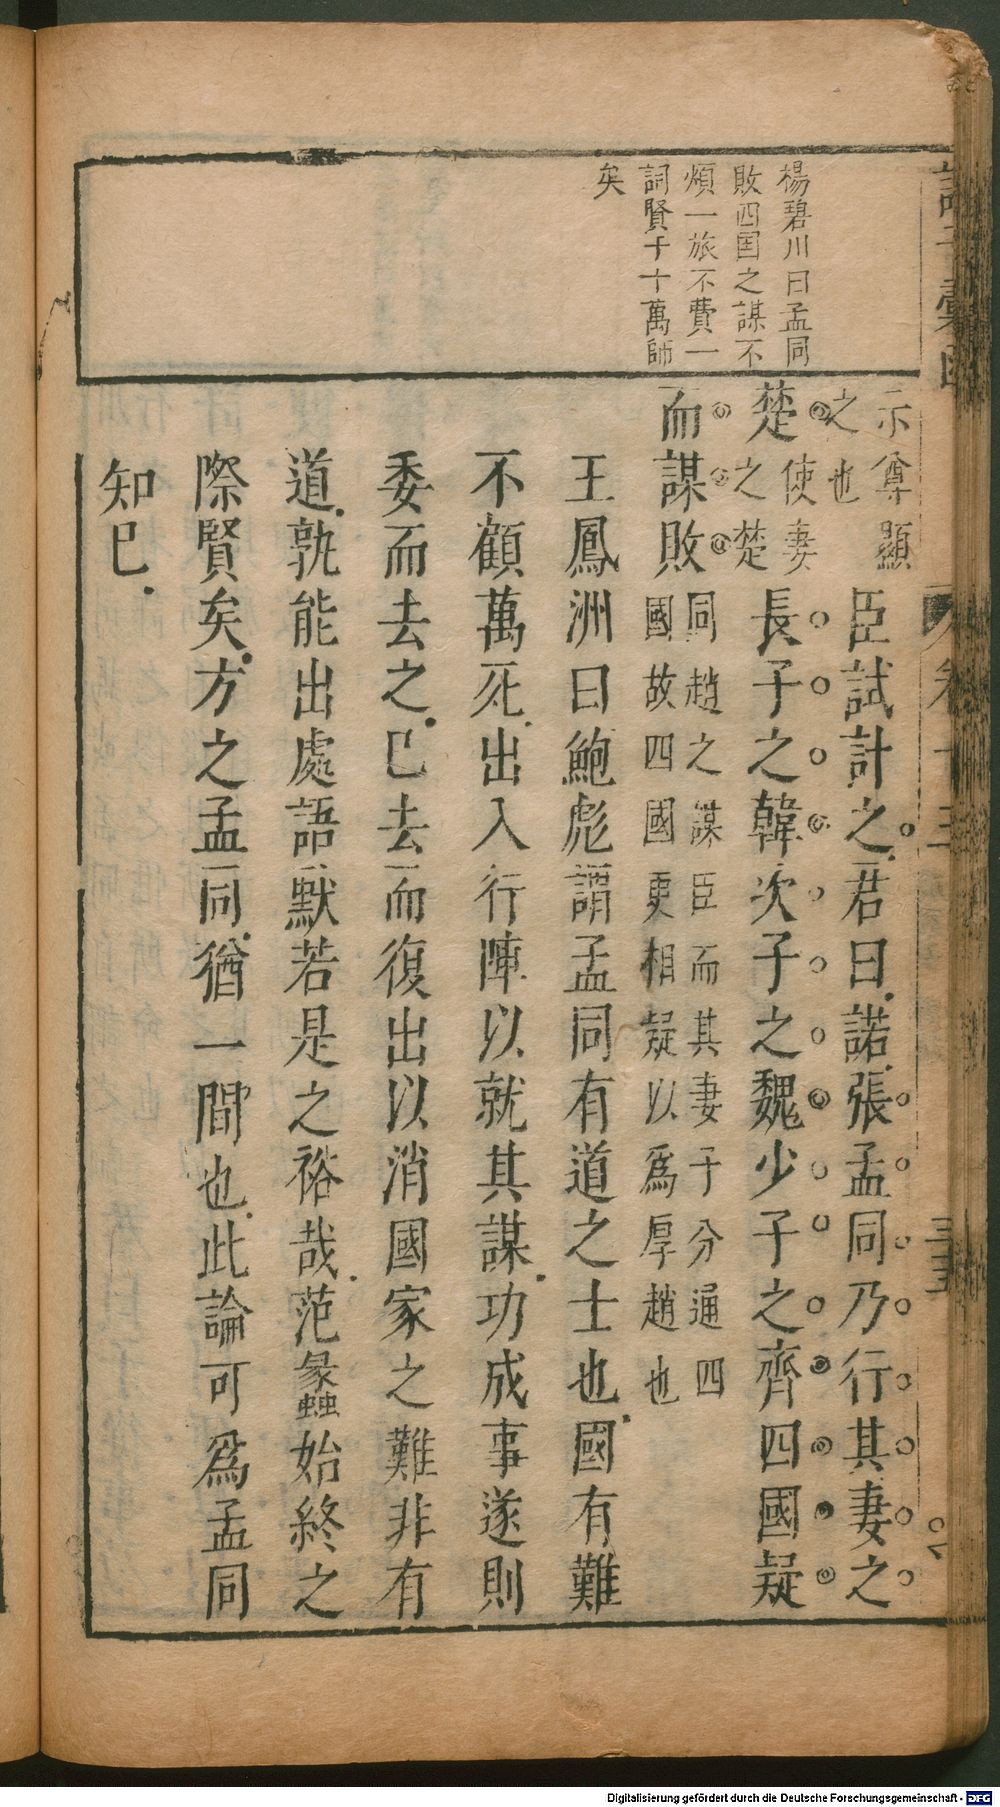 楊碧川曰孟同
敗四国之謀不
煩一旅不費一
詞賢于十萬師
矣
示尊顯
之也
臣試計之君曰諾張孟同乃行其妻之
楚
使妻
之楚
長子之韓次子之魏少子之齊四國疑
而謀敗
同趙之謀臣而其妻于分通四
國故四國更相疑以爲厚趙也
王鳳洲曰鮑彪謂孟同有道之士也國有難
不顧萬死出入行陣以就其謀功成事遂則
委而去之已去而復出以消國家之難非有
道孰能出處語默若是之裕哉范蠡始終之
際賢矣方之孟同猶一間也此論可爲孟同
知已
三五
Digitalisierung gefördert durch die Deutsche Forschungsgemeinschaft - DFG